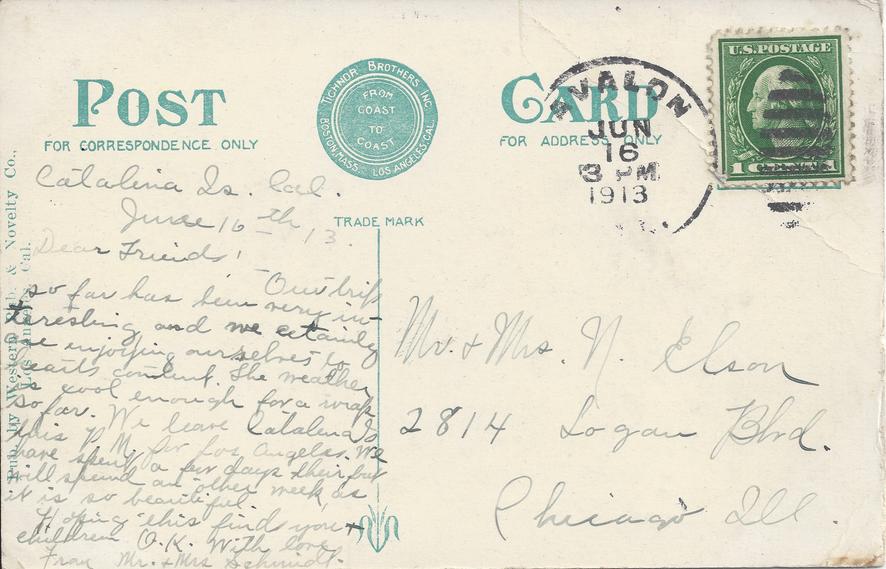 POST CARD
TICHNOR BROTHERS INC.
BOSTON, MASS. LOS ANGELES, CAL.
FROM
COAST
TO
COAST
TRADE MARK
FOR CORRESPONDENCE ONLY
FOR ADDRESS ONLY
U.S. POSTAGE
1 CENT 1
AVALON
JUN
16
3 PM
1913
Pub. by Western Pub. & Novelty Co.,
Los Angeles, Cal.
Catalina Is. Cal.
June 16th 13.
Dear Friends!
Our trip
so far has been very in-
teresting and we certainly
be enjoying ourselves to
hearts content. The weather
is cool enough for a wrap
so far. We leave Catalina Is
this P.M for Los Angeles. We
have spent a few days their but
will spend an other week as
it is so beautiful.
Hoping this find you +
children O.K. With love
From Mr. + Mrs Schmidt.
Mr. + Mrs. N. Elson
2814 Logan Blvd.
Chicago Ill.